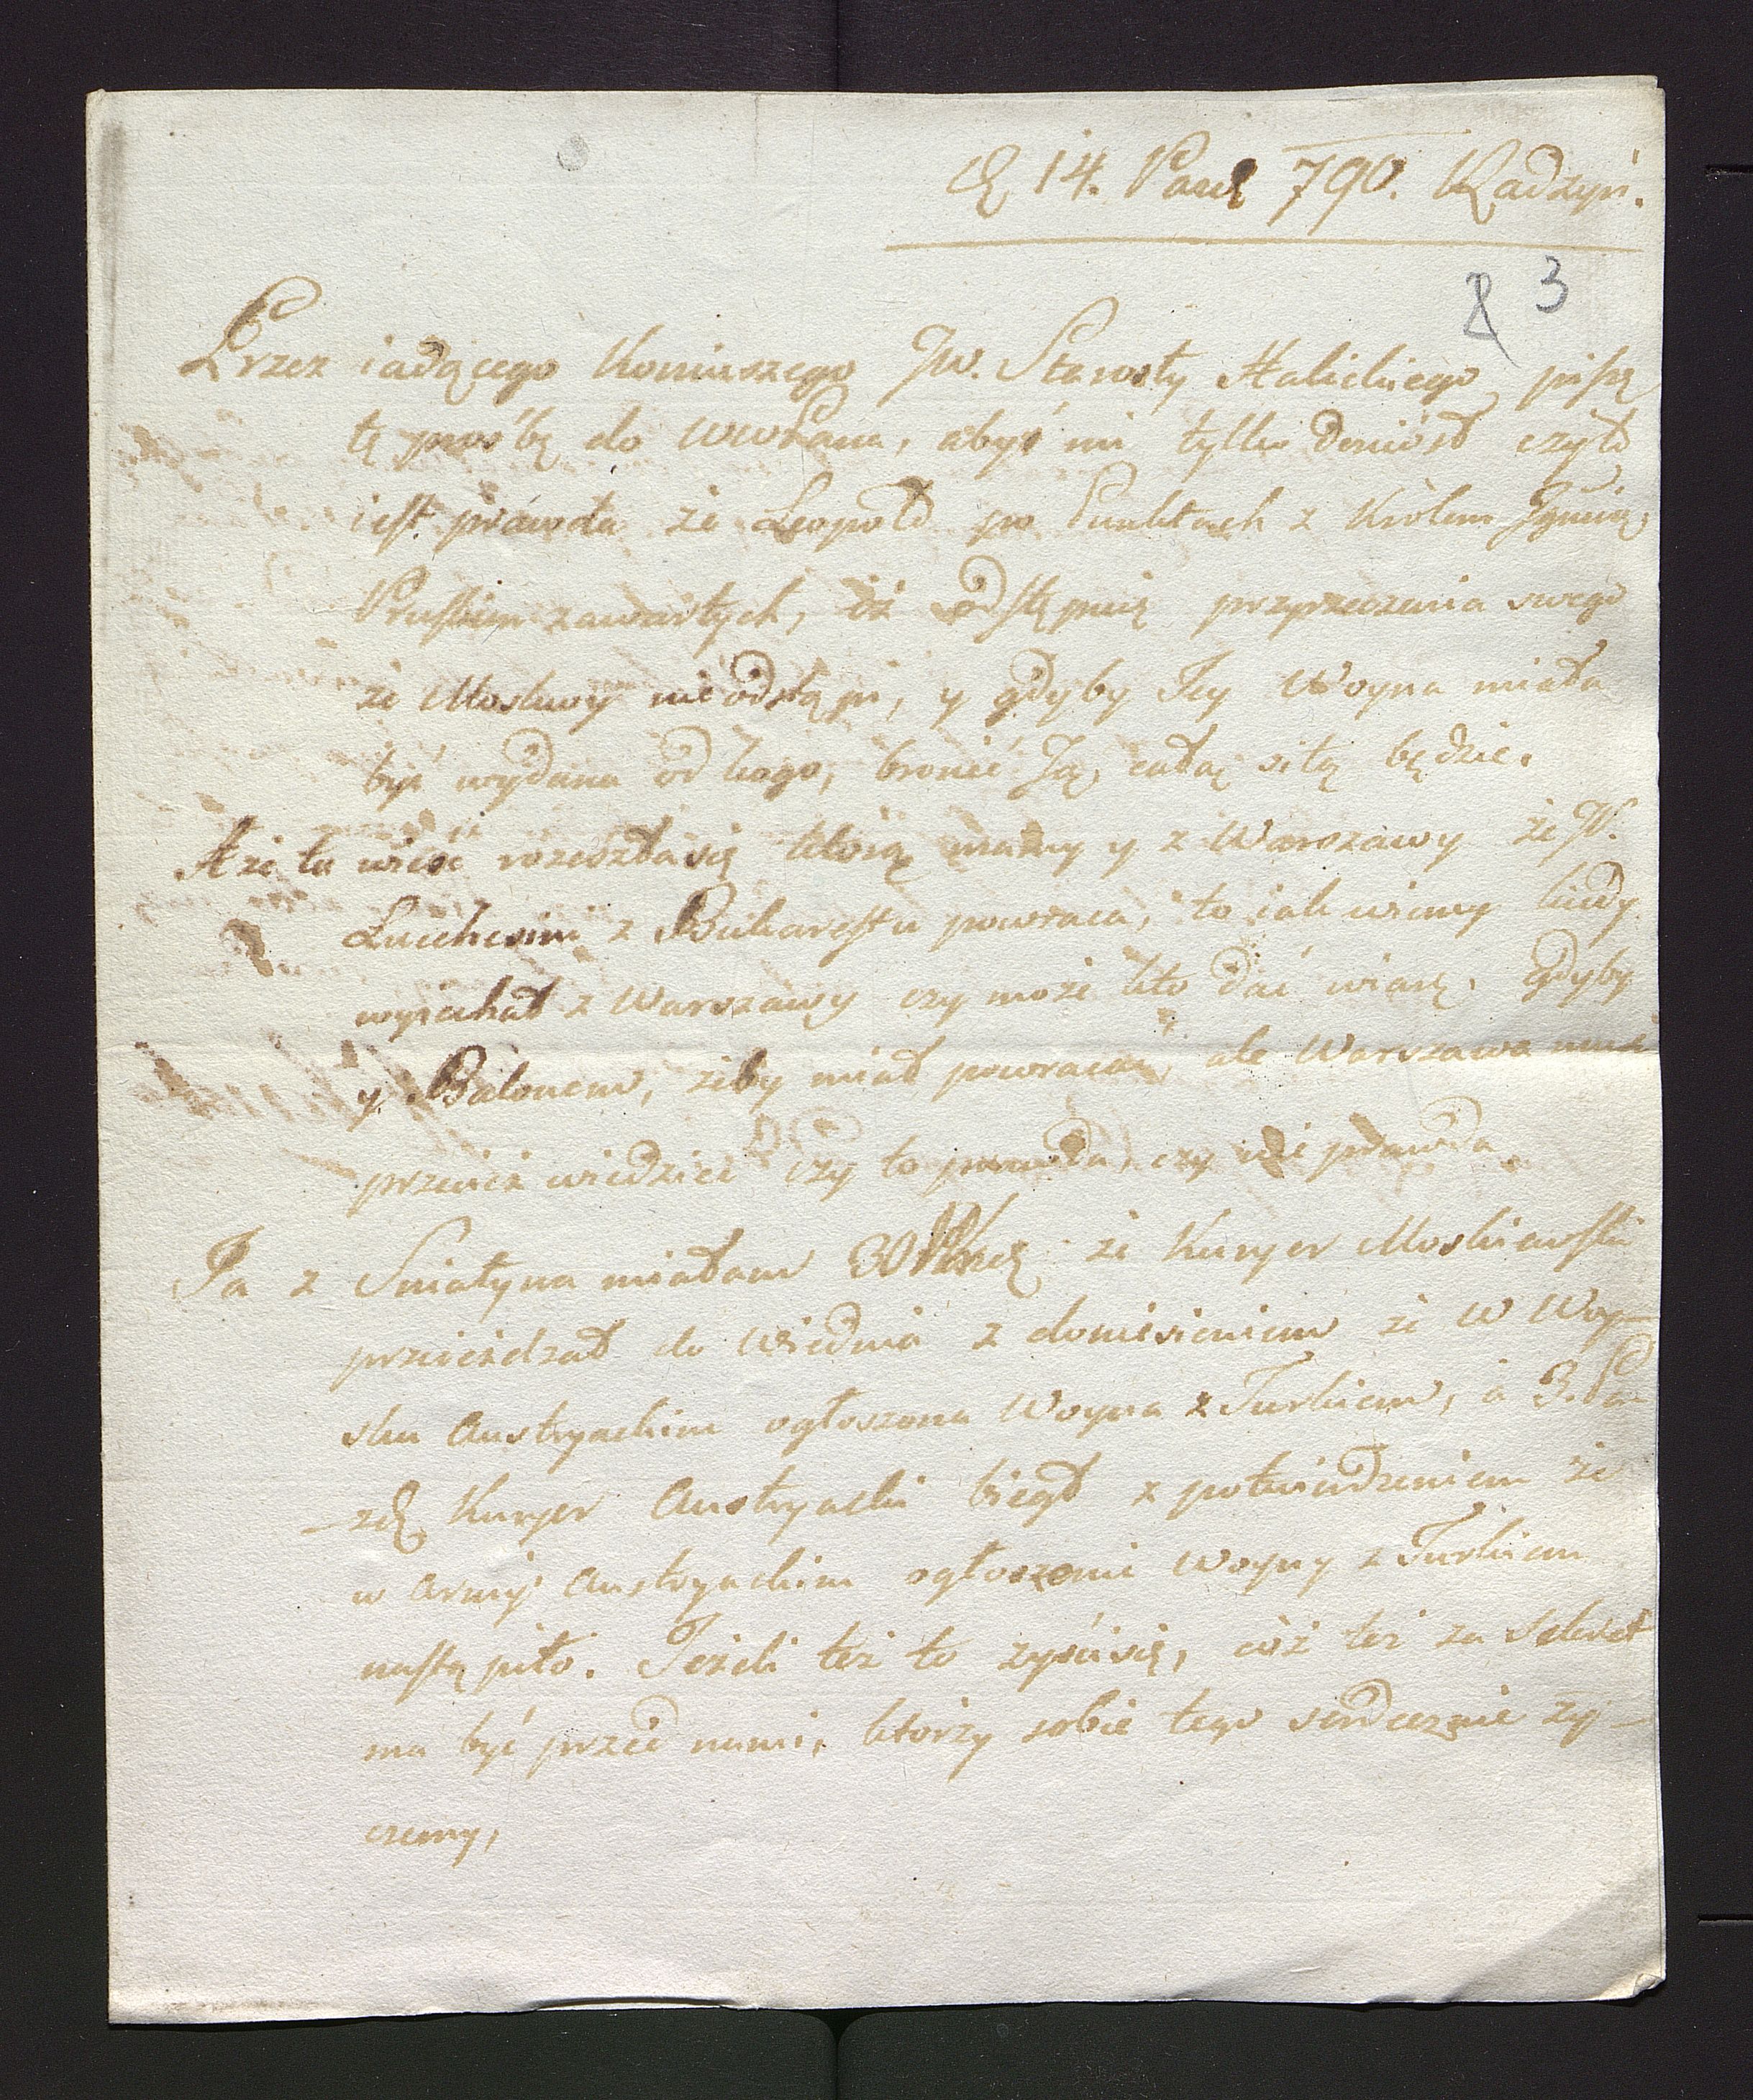 14. Paźd 790. Radzyń.
3
Przez iadącego Koniuszego Jw. Starosty Halickiego piszę
tę prośbę do WWPana, abyś mi tylko doniósł czyto
iest prawda że Leopold po Punktach z Królem Jmcią
Pruskim zawartych, iż odstępuię przyrzeczenia swego
że Moskwy nie odstąpi, y gdyby Jey Woyna miała
być wydana od kogo, bronić Ją, całą siłą będzie.
A że tu wieść rozeszła się którą mamy y z Warszawy że W.
Lucchesini z Bukaresztu powraca, to iak wiemy kiedy
wyiechał z Warszawy czy może kto dać wiarę, gdyby
y Balonem, żeby miał powracać, ale Warszawa musi
przecież wiedzieć czy to prawda, czy nie prawda.
Ja z Sniatyna miałam 30 że Kuryer Moskiewski
przeieżdzał do Wiednia z doniesieniem że w Woy-
sku Austryackim ogłoszona Woyna z Turkiem, a 3. Pa
-zd Kuryer Austryacki biegł z potwierdzeniem że
w Armij Austryackim ogłoszenie Woyny z Turkiem
nastąpiło. Jeżeli też to zyści się, cóż też za Sekret
ma być przed nami, którzy sobie tego serdecznie zy-
czemy,